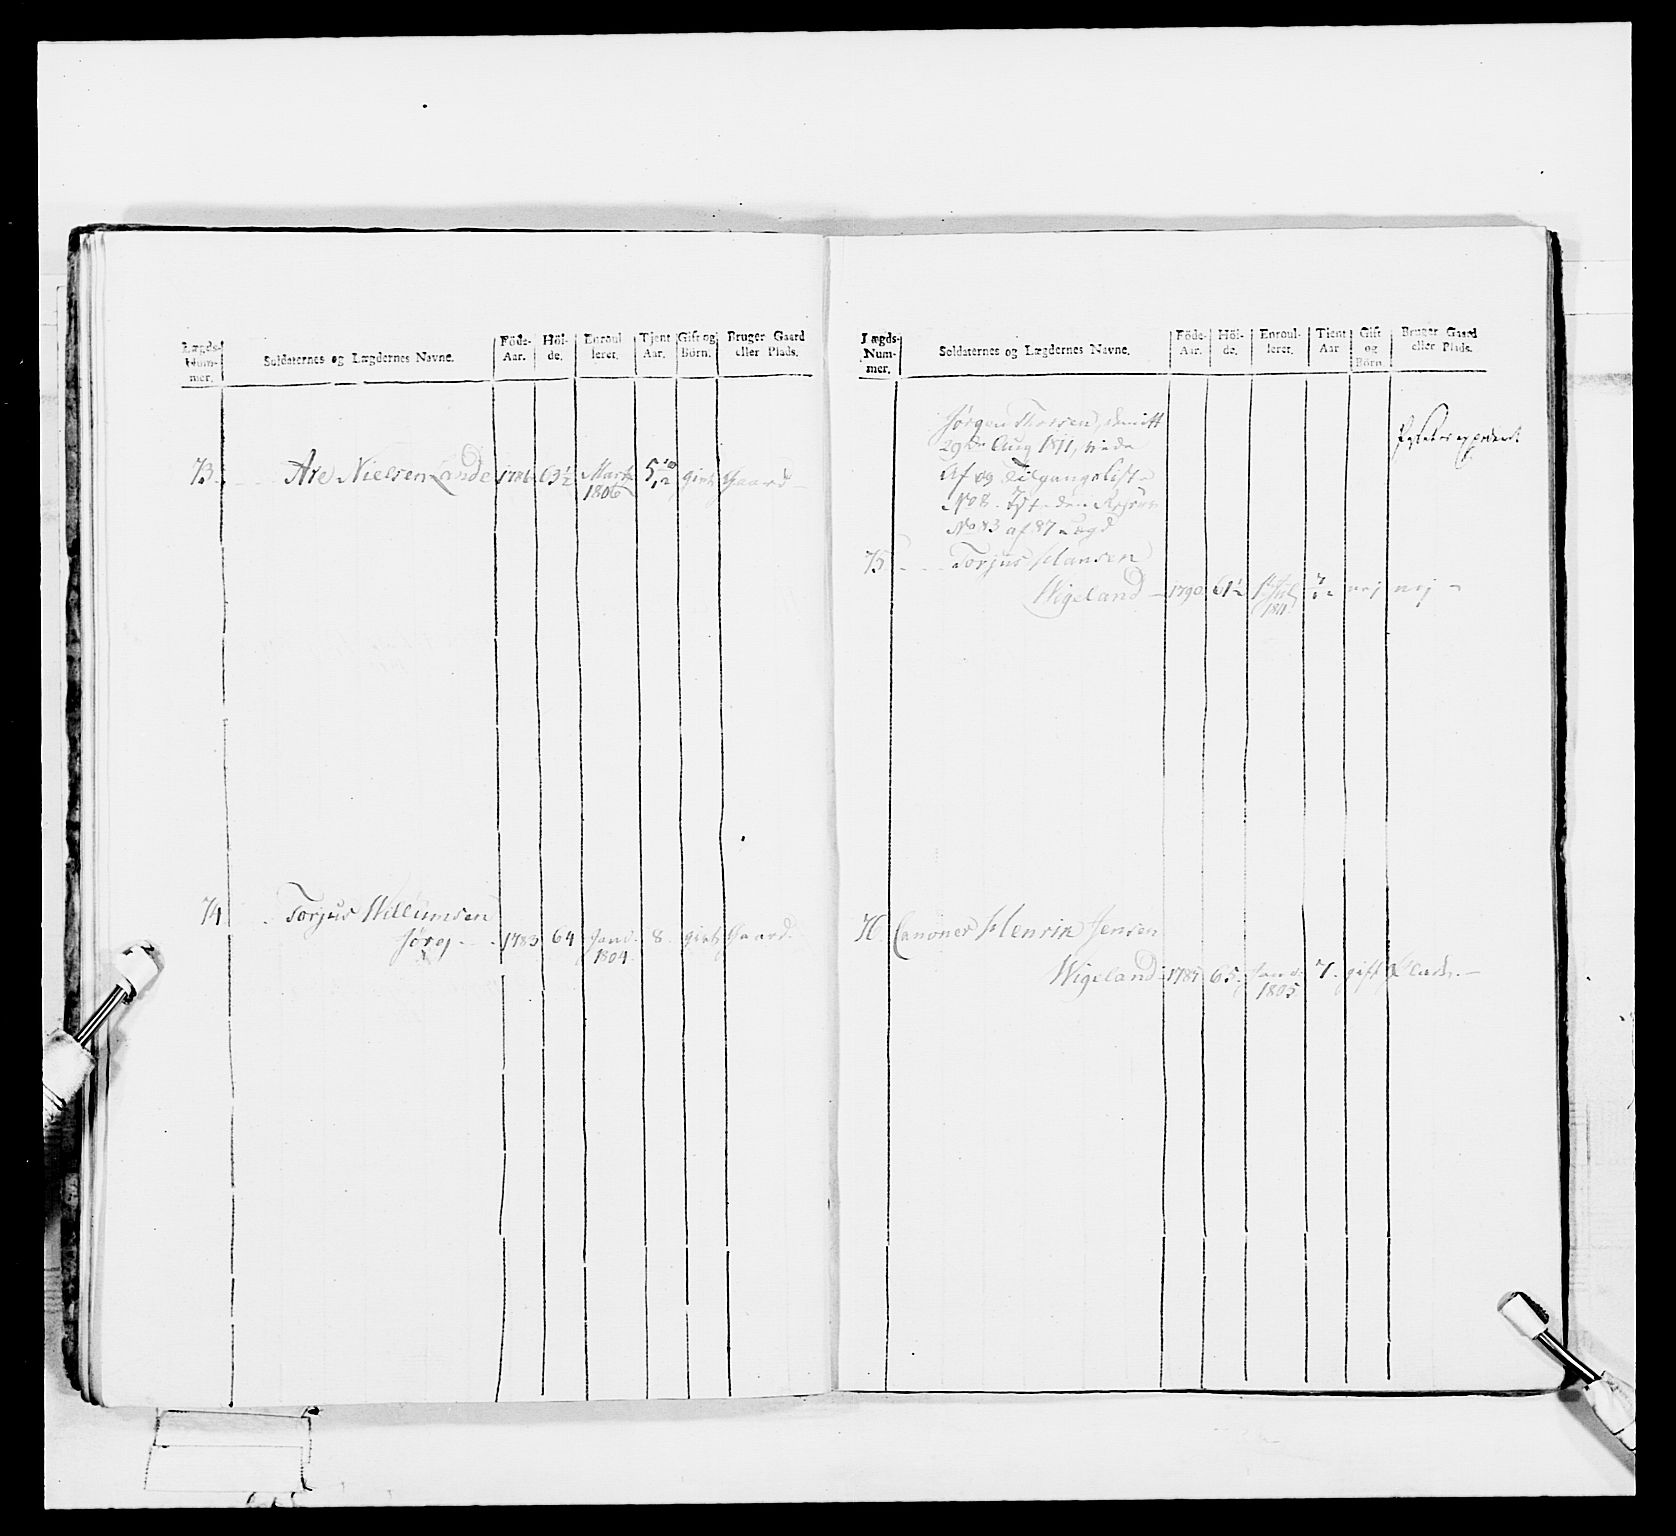 Lægds- Num- mer.
Soldaternes og Lægdernes Navne.
Föde- Aar.
Höi- de.
Enroul leret.
Tjent Aar.
Gift og Börn.
Bruger Gaard eller Plads.
73. Are Nielsen Lande 1786 63½ Marts 5 10/12 gift Gaard
1806
74 Torjus Willumsen
1783 64 Jand. 8. gift Gaard.
1804.
Lægds- Num- mer.
Soldaternes og Lægdernes Navne.
Föde- Aar.
Höi- de.
Enroul- leret.
Tjent Aar
Gift og Börn.
Bruger Gaard eller Plads.
Jørgen Thorsen, demitt
29de Aug 1811, vide
Af og Tilgangslist
No 8.
No 83 af 87
75 Torjus Hansen
Wigeland 1790 61½ nej nej
1811
76 Canoner Henrik Jensen
Wigeland 1785 65. Jand. 7. gift Plads.
1805